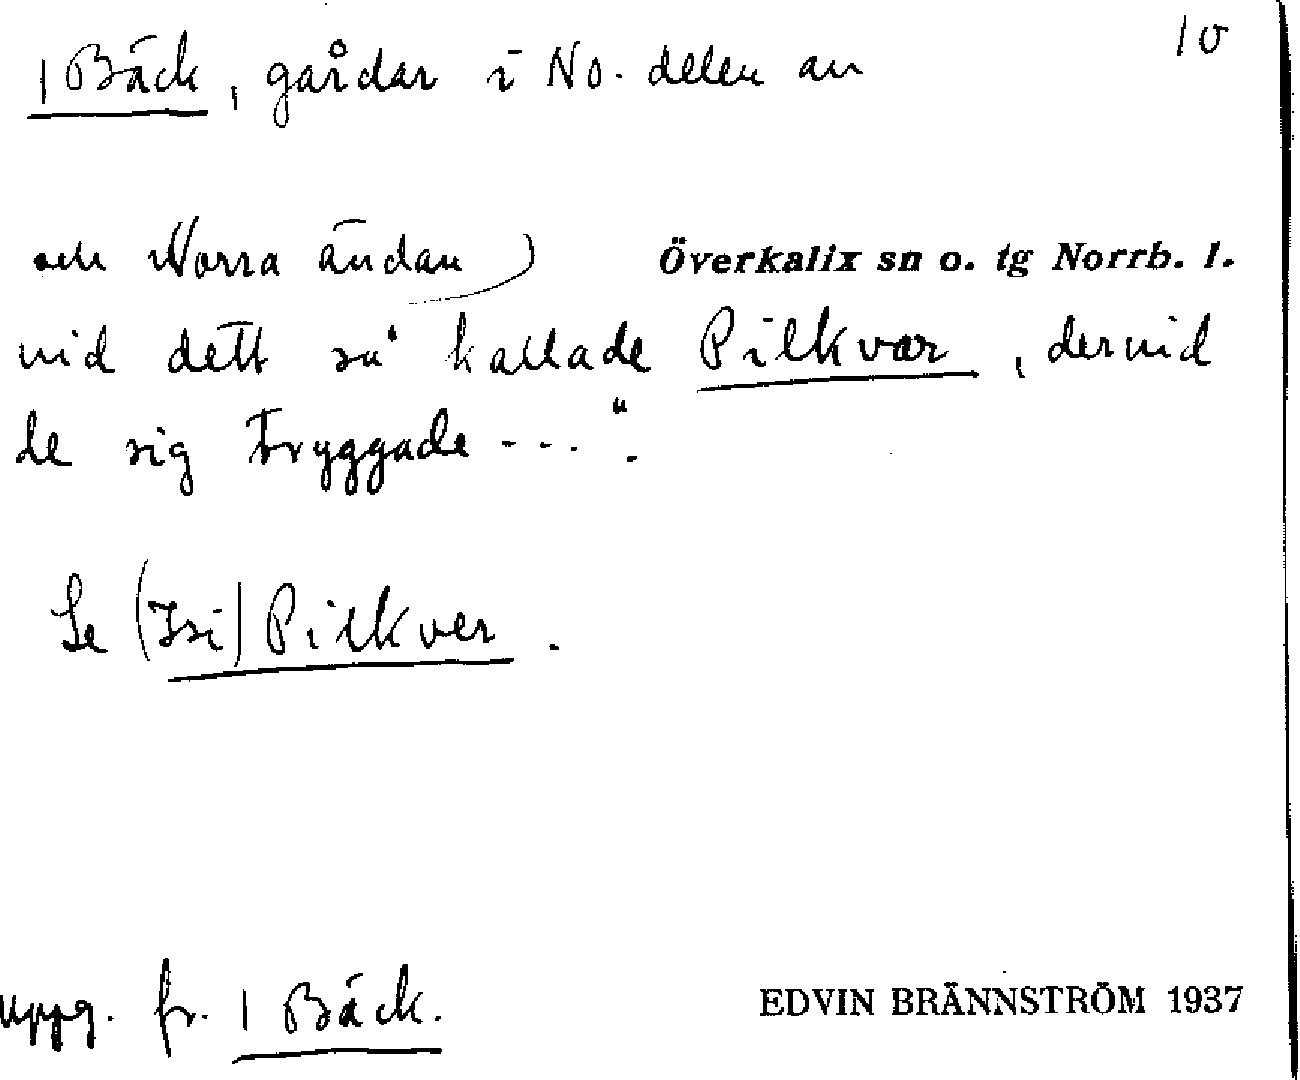 10
1 Bäck, gårdar i No. delen av
och Norra ändan)
Överkalix sn o. tg Norrb. l.
vid dett så kallade Pilkvar, dervid
de sig tryggade - - - ".
Se (Isi) Pilkver.
Uppg. fr. 1 Bäck.
EDVIN BRÄNNSTRÖM 1937